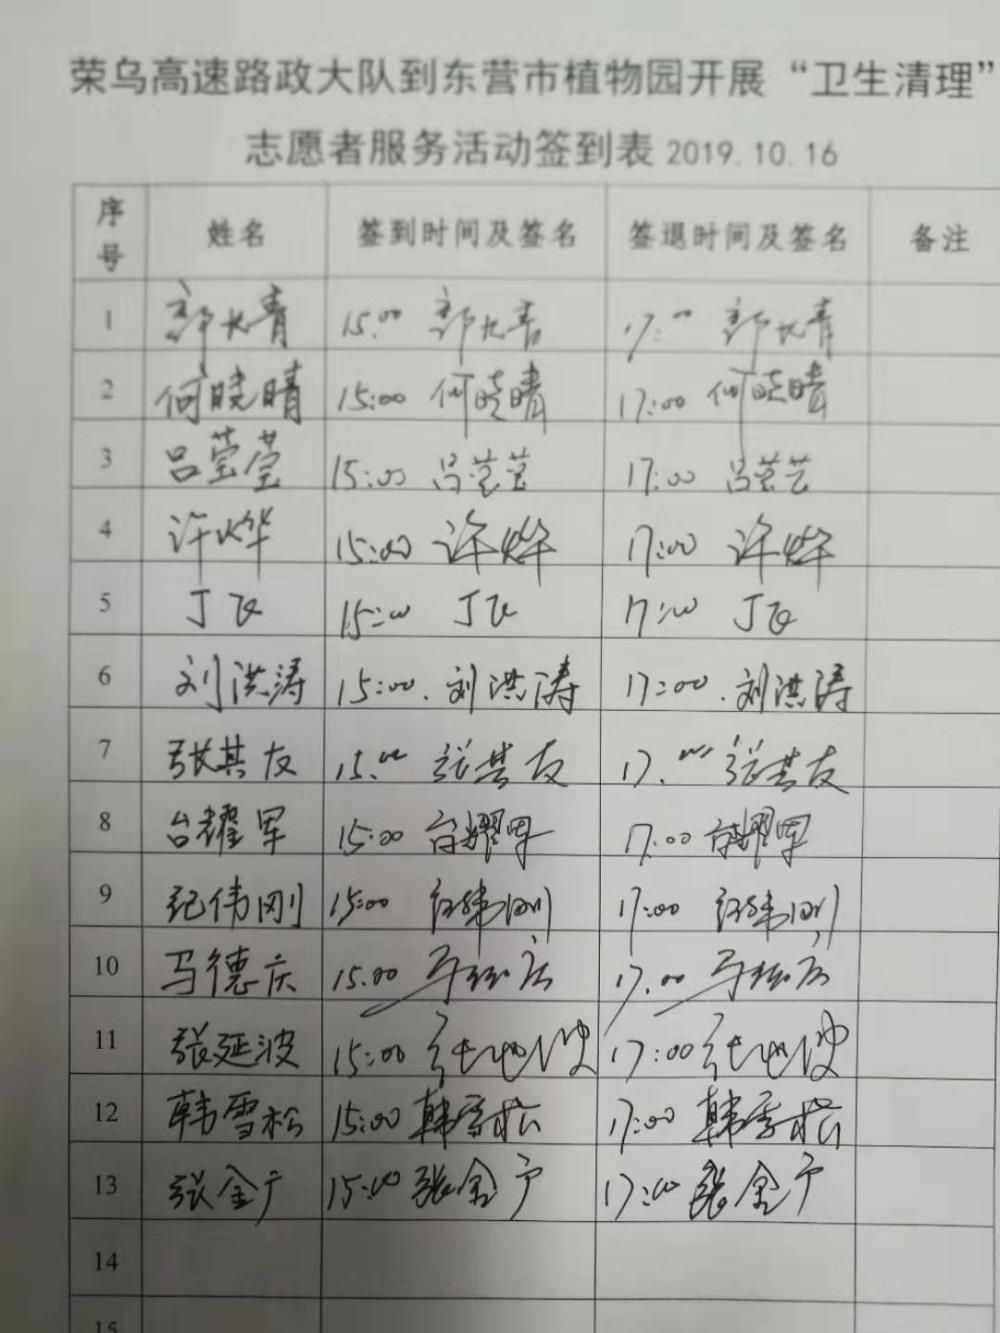 荣乌高速路政大队到东营市植物园开展“卫生清理”
志愿者服务活动签到表 2019.10.16
序号 姓名 签到时间及签名 签退时间及签名 备注
1 郭长青 15:00 郭长青 17:00 郭长青
2 何晓晴 15:00 何晓晴 17:00 何晓晴
3 吕莹莹 15:00 吕莹莹 17:00 吕莹莹
4 许烨 15:00 许烨 17:00 许烨
5 丁飞 15:00 丁飞 17:00 丁飞
6 刘洪涛 15:00. 刘洪涛 17:00. 刘洪涛
7 张其友 15:00 张其友 17:00 张其友
8 台耀军 15:00 台耀军 17:00 台耀军
9 纪伟刚 15:00 纪伟刚 17:00 纪伟刚
10 马德庆 15:00 马德庆 17:00 马德庆
11 张延波 15:00 张延波 17:00 张延波
12 韩雪松 15:00 韩雪松 17:00 韩雪松
13 张金广 15:00 张金广 17:00 张金广
14
15